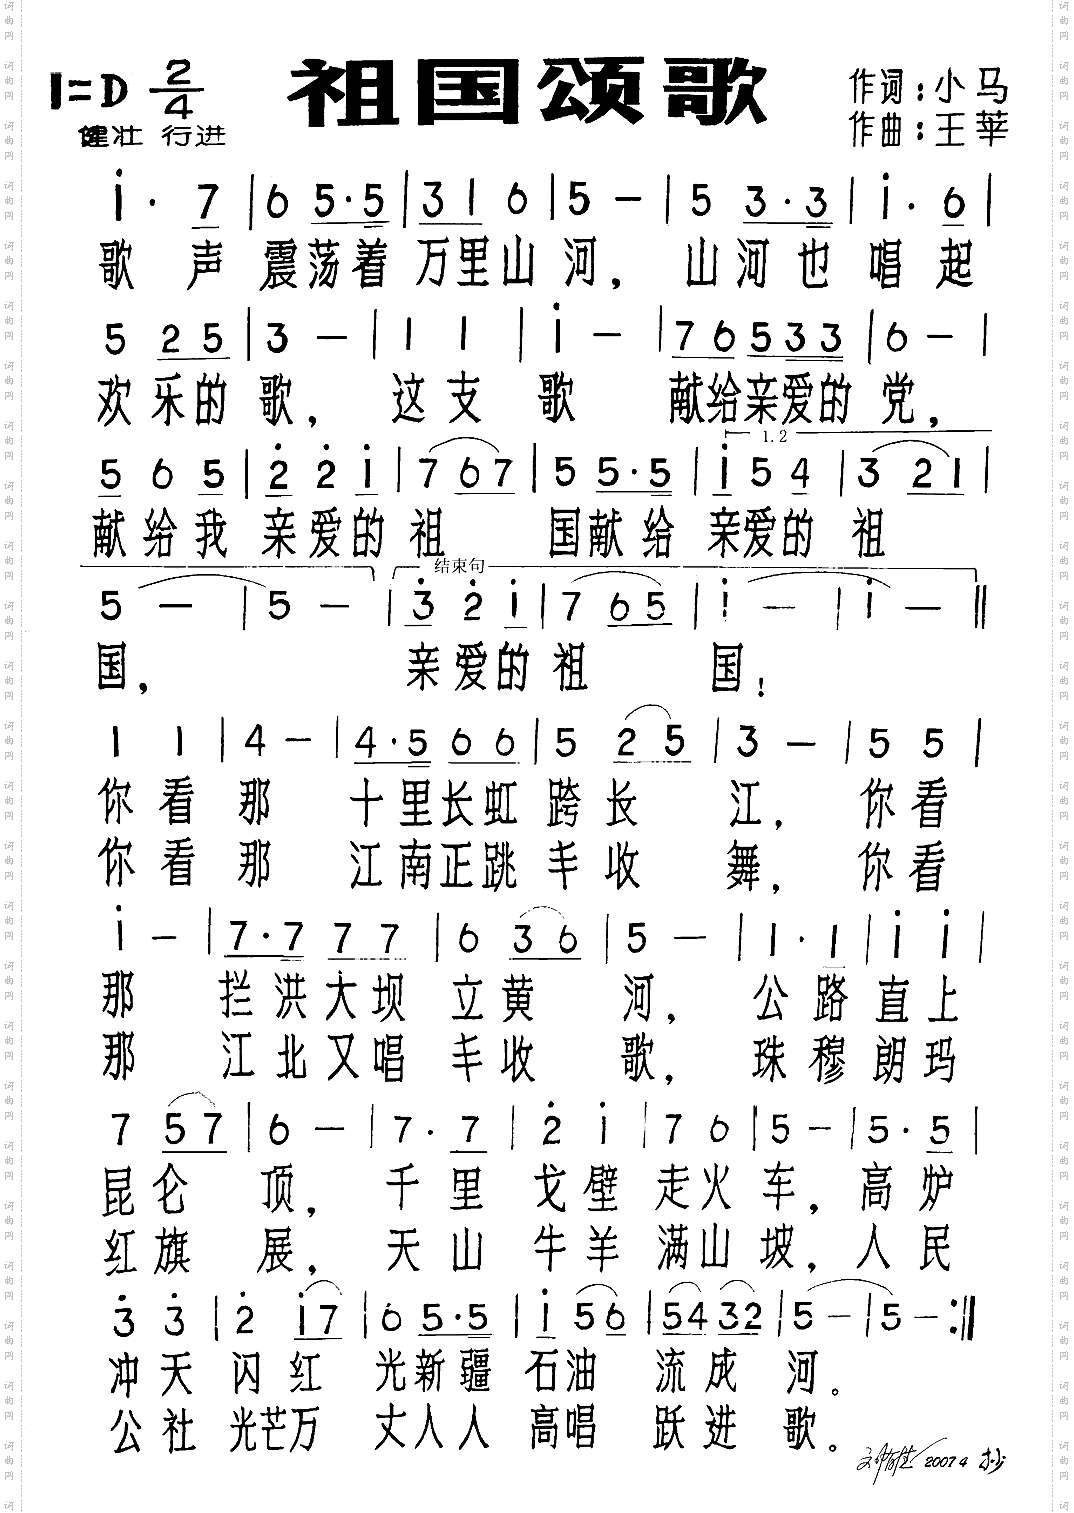 1=D 2/4 祖国颂歌 作词：小马
健壮 行进 作曲：王莘
i· 7 | 6 5·5 | 3 1 6 | 5 — | 5 3·3 | i· 6 |
歌声震荡着万里山河，山河也唱起
5 2 5 | 3 — | 1 1 | i — | 7 6 5 3 3 | 6 — |
欢乐的歌，这支歌 献给亲爱的党，
1.2
5 6 5 | 2 2 i | 7 6 7 | 5 5·5 | i 5 4 | 3 2 1 |
献给我亲爱的祖 国献给亲爱的祖
结束句
5 — | 5 — | 3 2 i | 7 6 5 | i — | i — ‖
国， 亲爱的祖 国！
1 1 | 4 — | 4·5 6 6 | 5 2 5 | 3 — | 5 5 |
你看那 十里长虹跨长 江，你看
你看那 江南正跳丰收 舞，你看
i — | 7·7 7 7 | 6 3 6 | 5 — | 1· 1 | i i |
那 拦洪大坝立黄 河，公路直上
那 江北又唱丰收 歌，珠穆朗玛
7 5 7 | 6 — | 7· 7 | 2 i | 7 6 | 5 — | 5· 5 |
昆仑 顶，千里戈壁走火车，高炉
红旗 展，天山牛羊满山坡，人民
3 3 | 2 i 7 | 6 5·5 | i 5 6 | 5 4 3 2 | 5 — | 5 — :‖
冲天闪红 光新疆石油 流成 河。
公社光芒万 丈人人高唱 跃进 歌。
2007 4 抄
词曲网